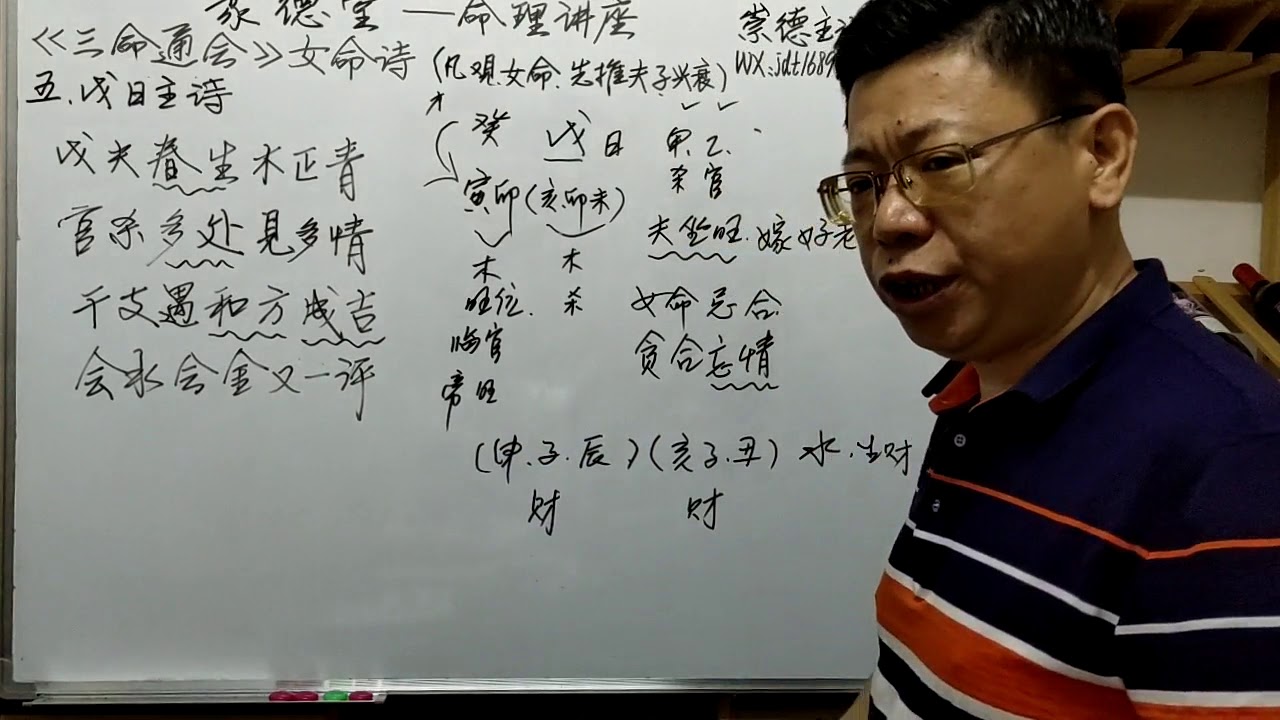 家德堂—命理讲座
崇德主
WX:jdt1689
《三命通会》女命诗(凡观女命.先推夫子兴衰)
五.戊日主诗
戊夫春生木正青
官杀多处见多情
干支遇和方成吉
会水会金又一评
癸 戊日 甲.乙.
杀官
寅卯(亥卯未)
夫坐旺.嫁好老
木 木
旺位. 杀
女命忌合
临官
贪合忘情
帝旺
(申.子.辰)(亥子.丑)水.生财
财 财